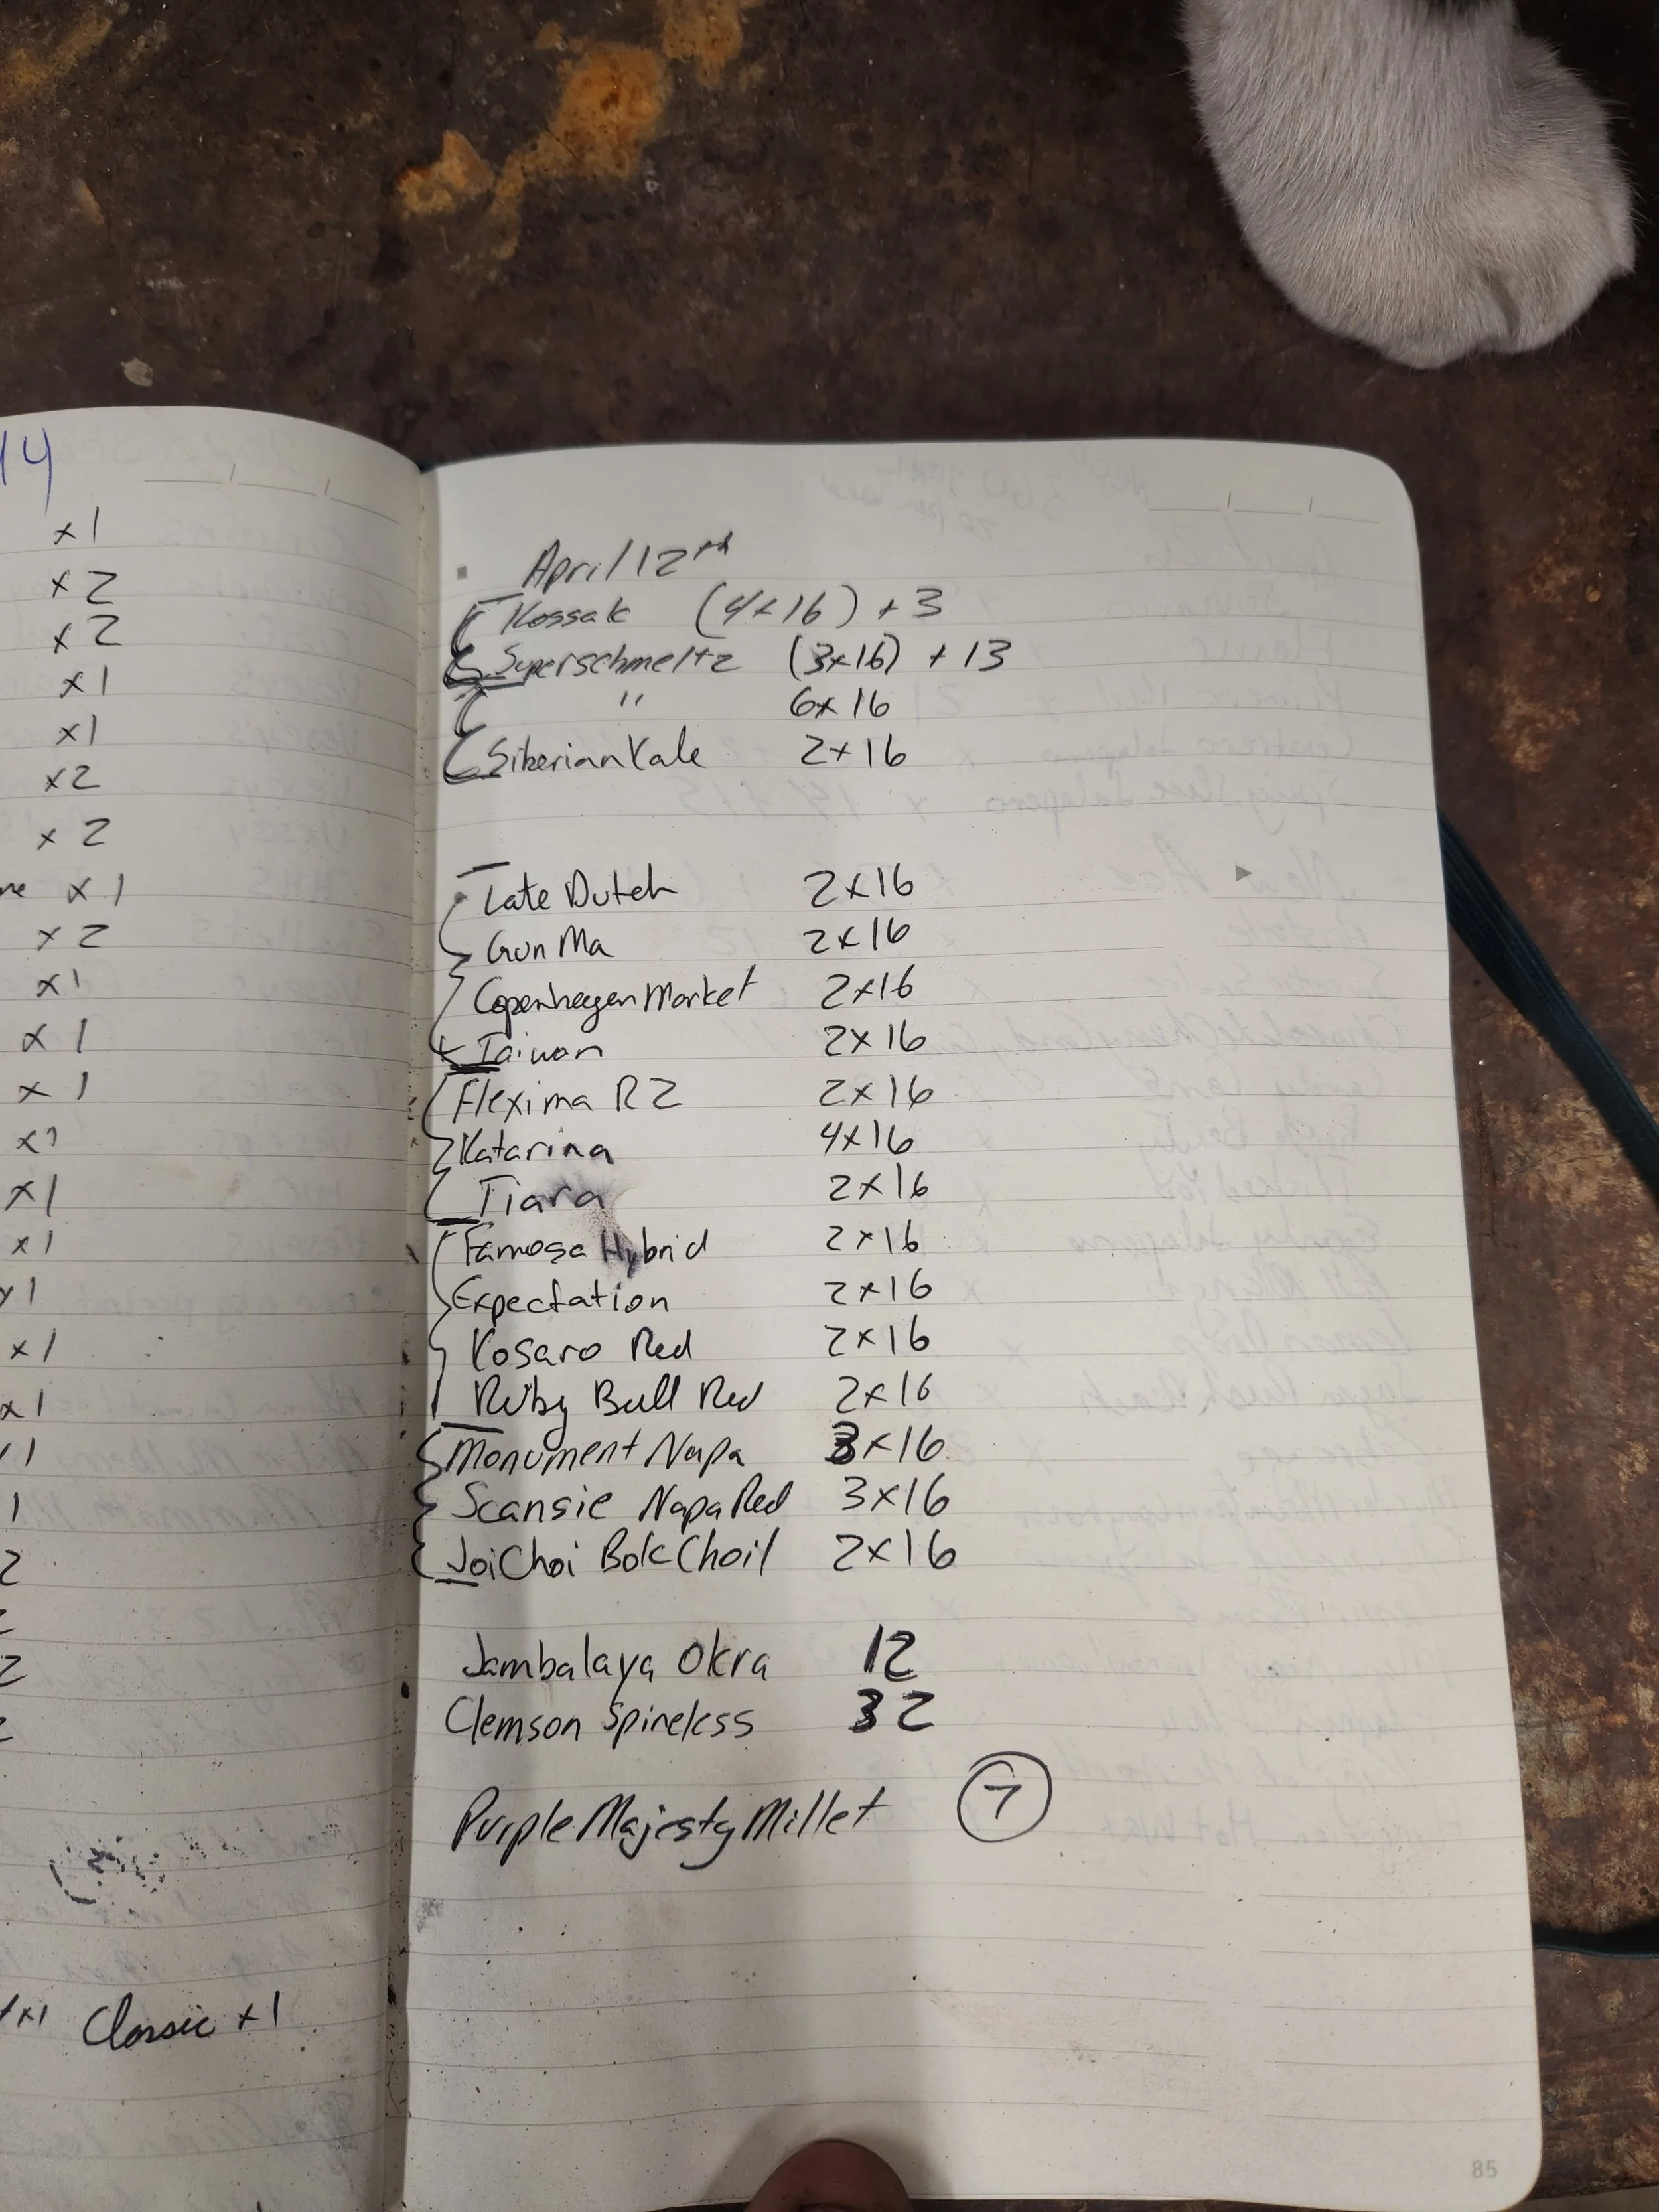 14
x1
x2
x2
x1
x1
x2
x2
x1
x2
x1
x1
x1
x1
x1
x1
x1
x1
1
2
2
x1 Classic x1
April 12th
Kossak (4x16) + 3
Superschmeltz (3x16) + 13
" 6x16
Siberian Kale 2x16
Late Dutch 2x16
Gun Ma 2x16
Copenhagen Market 2x16
Taiwan 2x16
Flexima RZ 2x16
Katarina 4x16
Tiara 2x16
Famosa Hybrid 2x16
Expectation 2x16
Kosaro Red 2x16
Ruby Ball Red 2x16
Monument Napa 3x16
Scansie Napa Red 3x16
Joi Choi Bok Choi 2x16
Jambalaya Okra 12
Clemson Spineless 32
Purple Majesty Millet 7
85